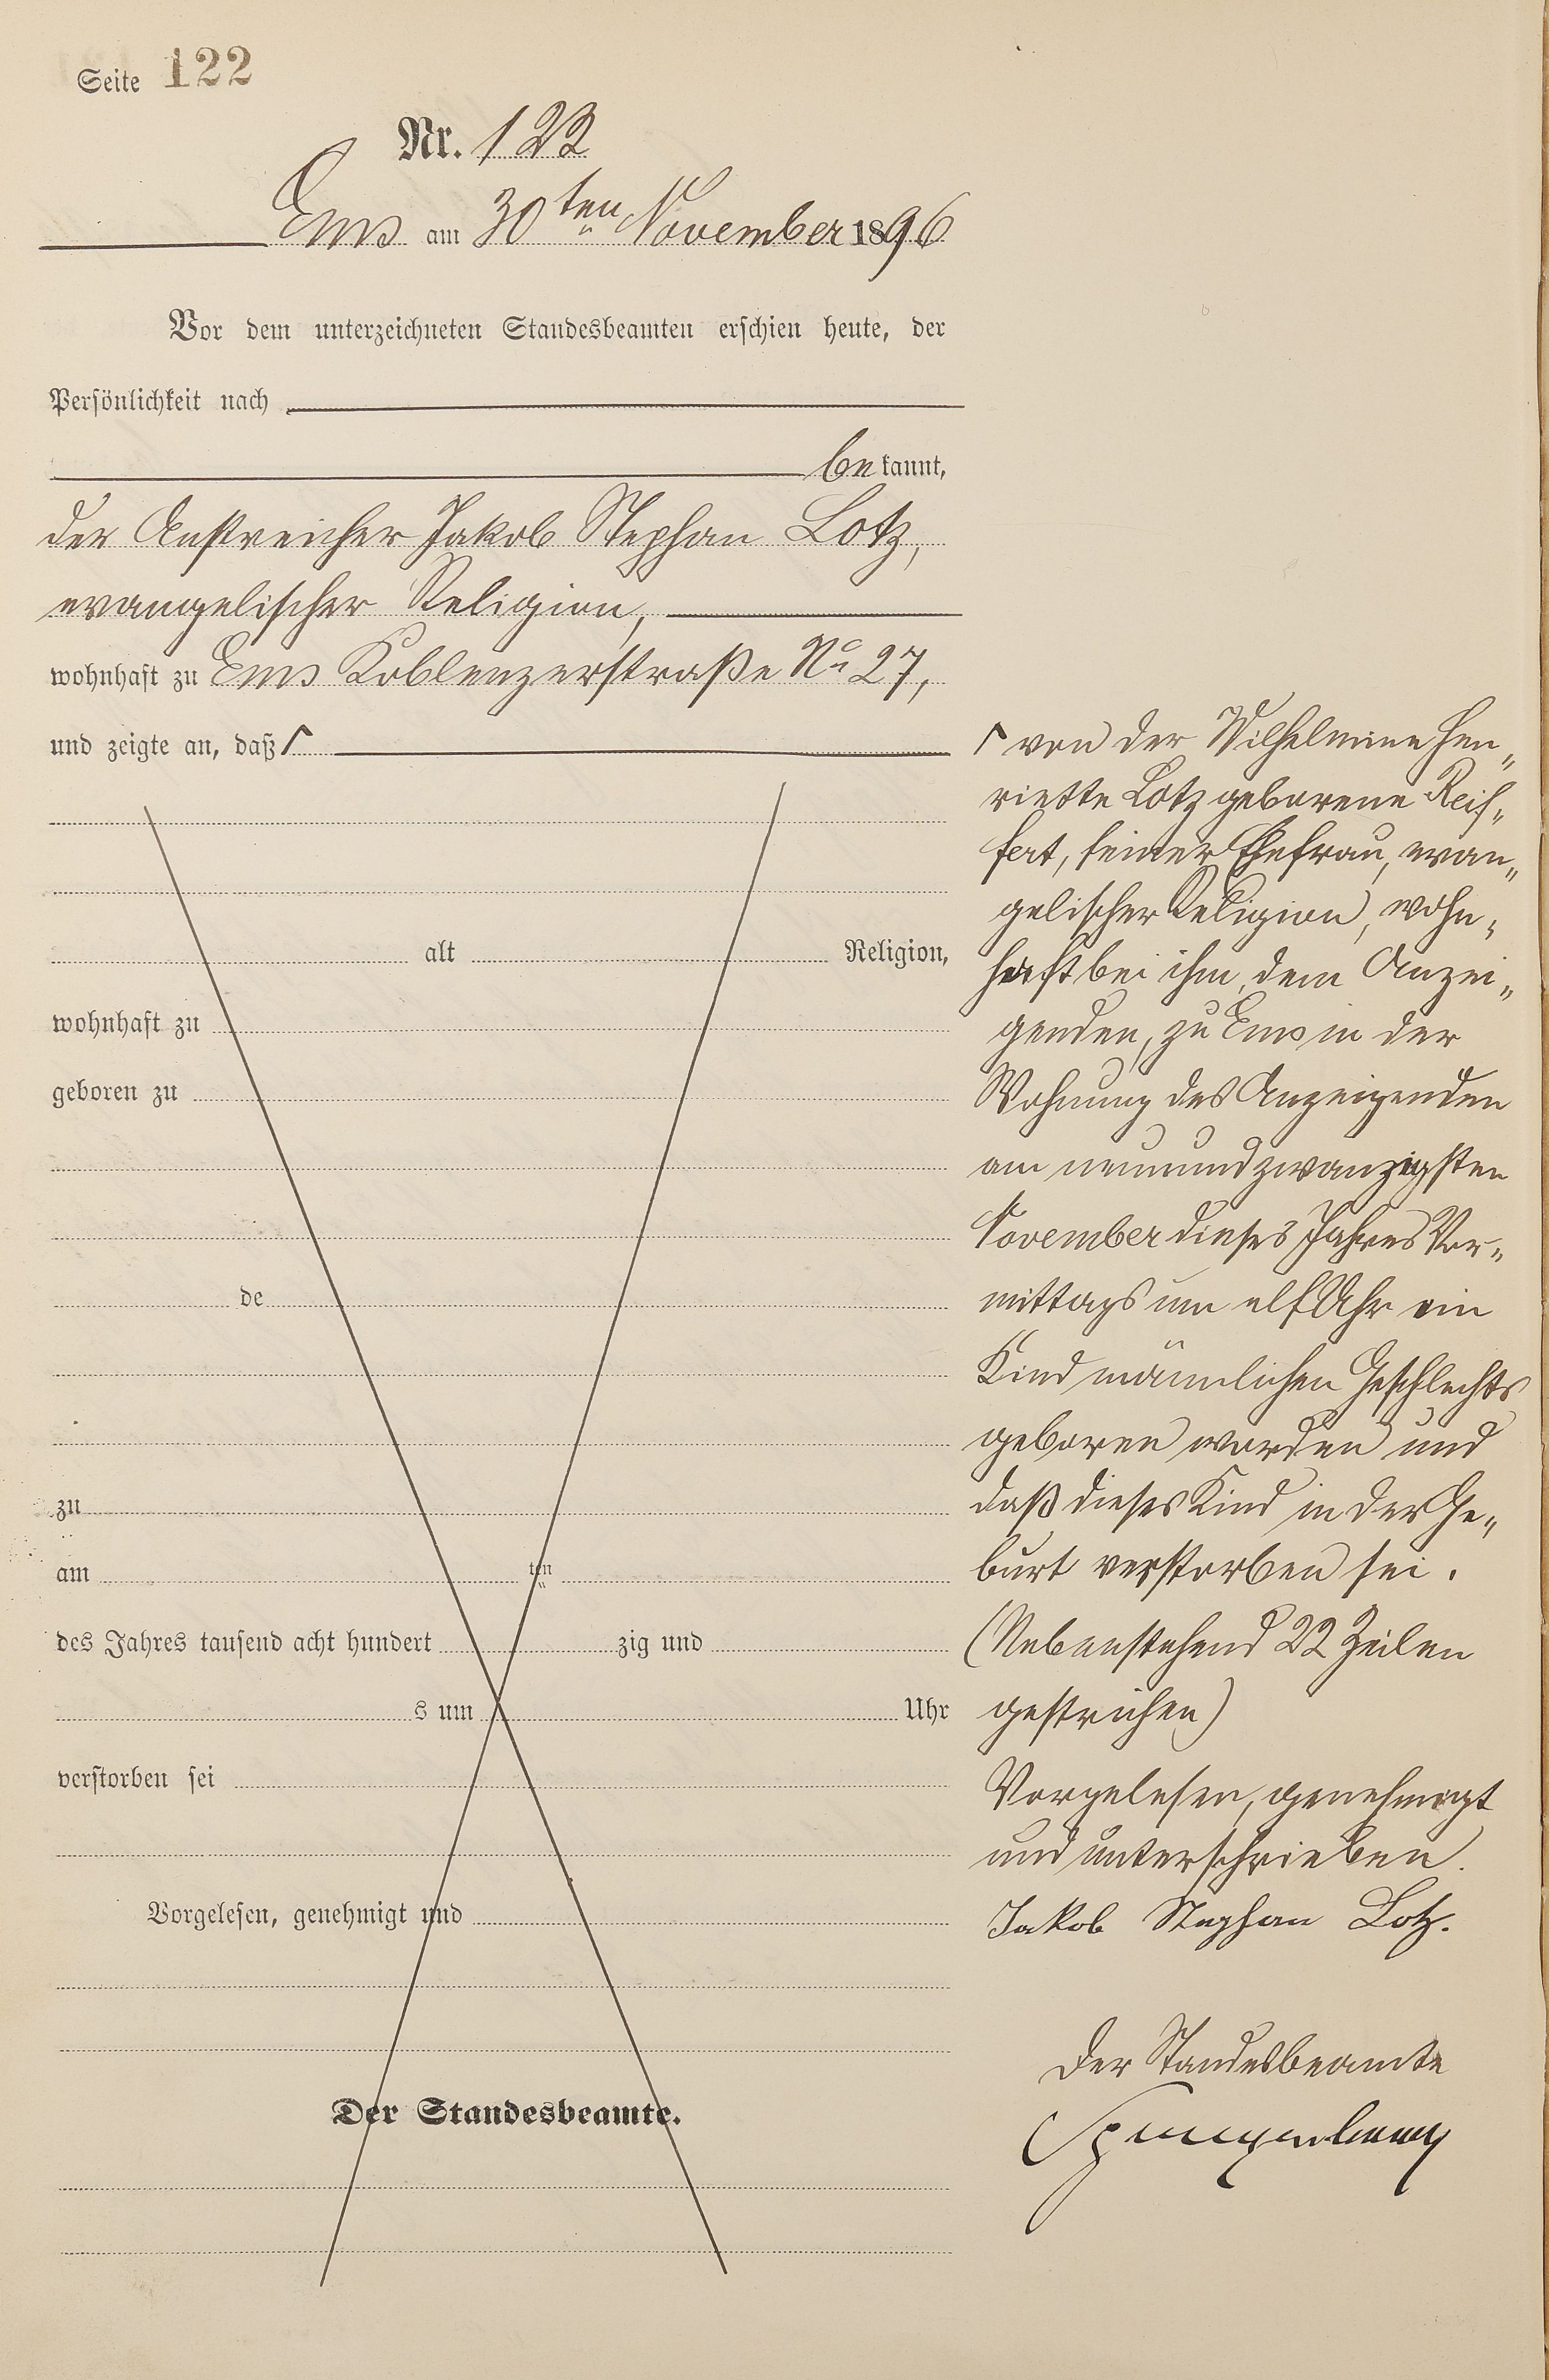 Seite 122
Nr. 122
Ems am 30ten November 1896
Vor dem unterzeichneten Standesbeamten erschien heute, der
Persönlichkeit nach
bekannt,
der Anstreicher Jakob Stephan Lotz,
evangelischer Religion,
wohnhaft zu Ems Koblenzerstraße No 27,
und zeigte an, daß ┌
alt Religion,
wohnhaft zu
geboren zu
de
zu
am ten
des Jahres tausend acht hundert zig und
s um Uhr
verstorben sei
Vorgelesen, genehmigt und
Der Standesbeamte.
┌ von der Wilhelmine Hen„
riette Lotz geborene Reif„
fert, seiner Ehefrau, evan„
gelischer Religion, wohn„
haft bei ihm, dem Anzei„
genden, zu Ems in der
Wohnung des Anzeigenden
am neunundzwanzigsten
November dieses Jahres Vor„
mittags um elf Uhr ein
Kind männlichen Geschlechts
geboren worden und
daß dieses Kind in der Ge„
burt verstorben sei.
(Nebenstehend 22 Zeilen
gestrichen)
Vorgelesen, genehmigt
und unterschrieben.
Jakob Stephan Lotz.
Der Standesbeamte
Spangenberg